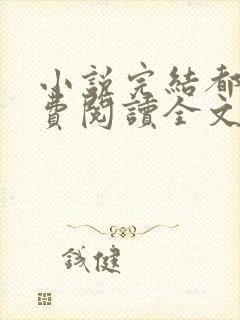 小說完結都
費閱讀全文
鋮健